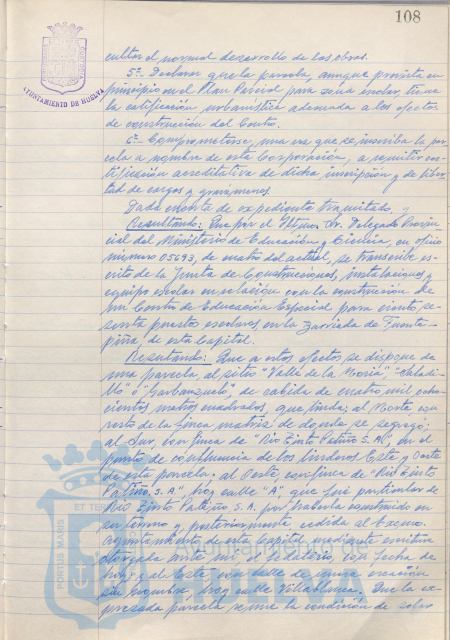 108
AYUNTAMIENTO DE HUELVA
cultar el normal desarrollo de las obras.
5º. Declarar que la parcela, aunque prevista en
principio en el Plan Parcial para zona escolar, tiene
la calificación urbanística adecuada a los efectos
de construcción del Centro.
6º. Comprometerse, una vez que se inscriba la par-
cela a nombre de esta Corporación, a remitir cer-
tificación acreditativa de dicha inscripción y de liber-
tad de cargas y gravámenes.
Dada cuenta de expediente tramitado, y
Resultando: Que por el Iltmo. Sr. Delegado Provin-
cial del Ministerio de Educación y Ciencia, en oficio
número 05693, de cuatro del actual, se transcribe es-
crito de la Junta de Construcciones, instalaciones y
equipo escolar en relación con la construcción de
un Centro de Educación Especial para ciento se-
senta puestos escolares, en la barriada de Fuente-
piña, de esta Capital.
Resultando: Que a estos efectos se dispone de
una parcela, al sitio "Valle de la Noria" "Saladi-
llo" o "Garbanzuelo", de cabida de cuatro mil ocho-
cientos metros cuadrados, que linda: al Norte con
resto de la finca matriz de donde se segregó;
al Sur, con finca de "Rio Tinto Patiño S.A", en el
punto de confluencia de los linderos Este y Oeste
de esta parcela; al Oeste, con finca de "Rio Tinto
Patiño, S.A." hoy calle "A", que fué particular de
Rio Tinto Patiño S.A. por haberla construido en
su terreno y posteriormente cedida al Excmo.
Ayuntamiento de esta Capital mediante escritura
otorgada ante mi el Notario, con fecha de
hoy y al Este, con calle de nueva creación
sin nombre, hoy calle Villablanca. Que la ex-
presada parcela reune la condición de solar
PORTUS MARIS
ET TERRAE
Ayuntamiento de
HUELVA